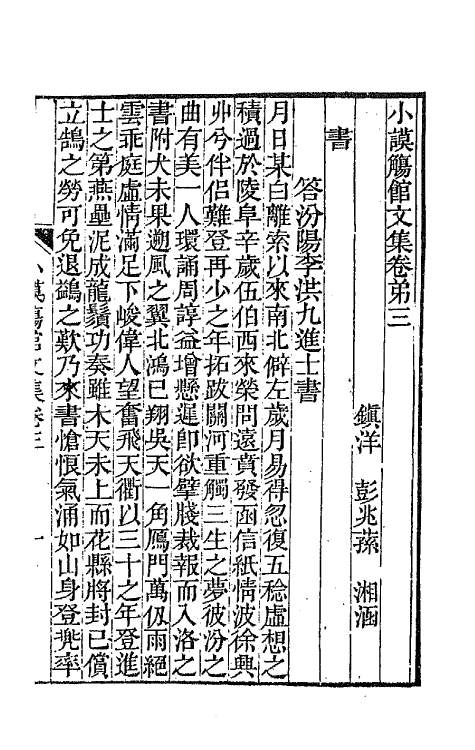 小謨觴館文集卷弟三
鎭洋　彭兆蓀　湘涵
書
答汾陽李洪九進士書
月日某白離索以來南北僻左歲月易得忽復五稔虛想之
積過於陵阜辛歲伍伯西來榮問遠賁發函信紙情波徐興
丱兮伴侶難登再少之年拓跋關河重觸三生之夢彼汾之
曲有美一人環誦周諄益增懸遲卽欲擘牋裁報而入洛之
書附犬未果遡風之翼北鴻已翔吳天一角鴈門萬仭雨絕
雲乖庭虛情滿足下峻偉人望奮飛天衢以三十之年登進
士之第燕壘泥成龍鬚功奏雖木天未上而花縣將封已償
立鵠之勞可免退鷁之歎乃來書愴悢氣涌如山身登兠率
小謨觴館文集卷三　一